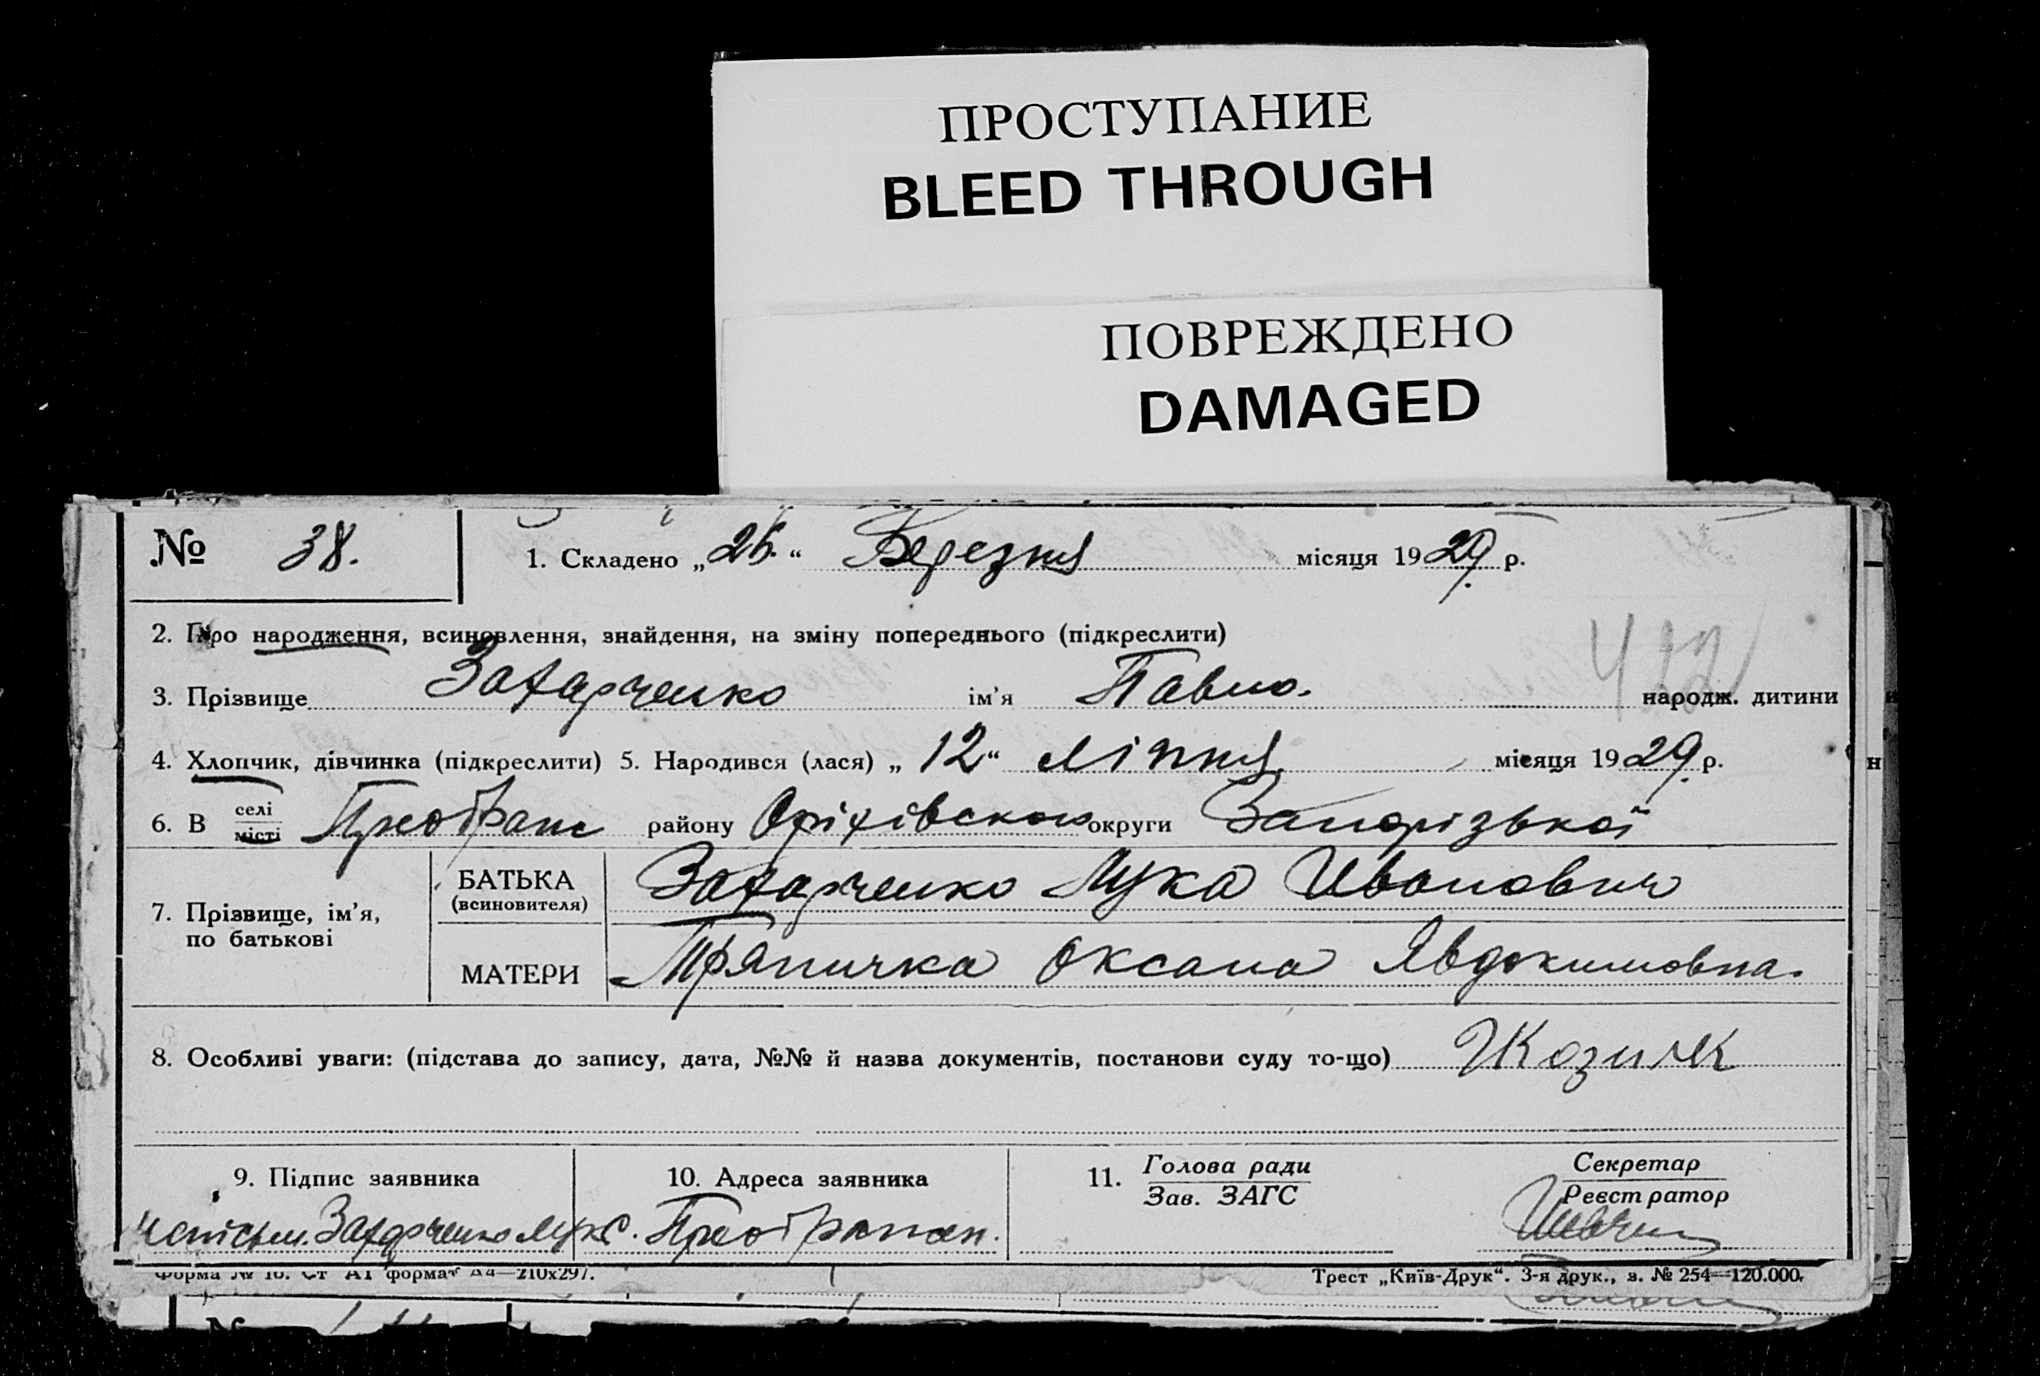 ПРОСТУПАНИЕ
BLEED THROUGH
ПОВРЕЖДЕНО
DAMAGED
№ 38. 1. Складено „26.“ Березня місяця 1929 р.
2. Про народження, всиновлення, знайдення, на зміну попереднього (підкреслити)
3. Прізвище Захарченко ім’я Павло. народж. дитини
4. Хлопчик, дівчинка (підкреслити) 5. Народився (лася) „12“ ліпня місяця 1929 р.
6. В селі місті Преображ району Оріхівского округи Запорізької
7. Прізвище, ім’я, по батькові
БАТЬКА (всиновителя) Захарченко Лука Иванович
МАТЕРИ Тряпичка Оксана Явдокимовна.
8. Особливі уваги: (підстава до запису, дата, №№ й назва документів, постанови суду то-що)
9. Підпис заявника 10. Адреса заявника 11. Голова ради Секретар
Зав. ЗАГС Реєстратор
Захарченко с.
Форма № 10. Ст А1 формат А4—210х297. Трест „Київ-Друк“. 3-я друк., з. № 254—120.000.